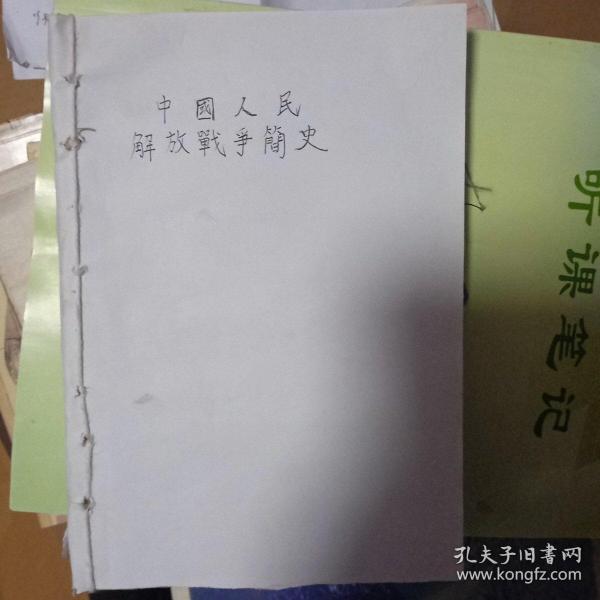 中國人民
解放戰爭簡史
听课笔记
孔夫子旧書网
www.kongfz.com